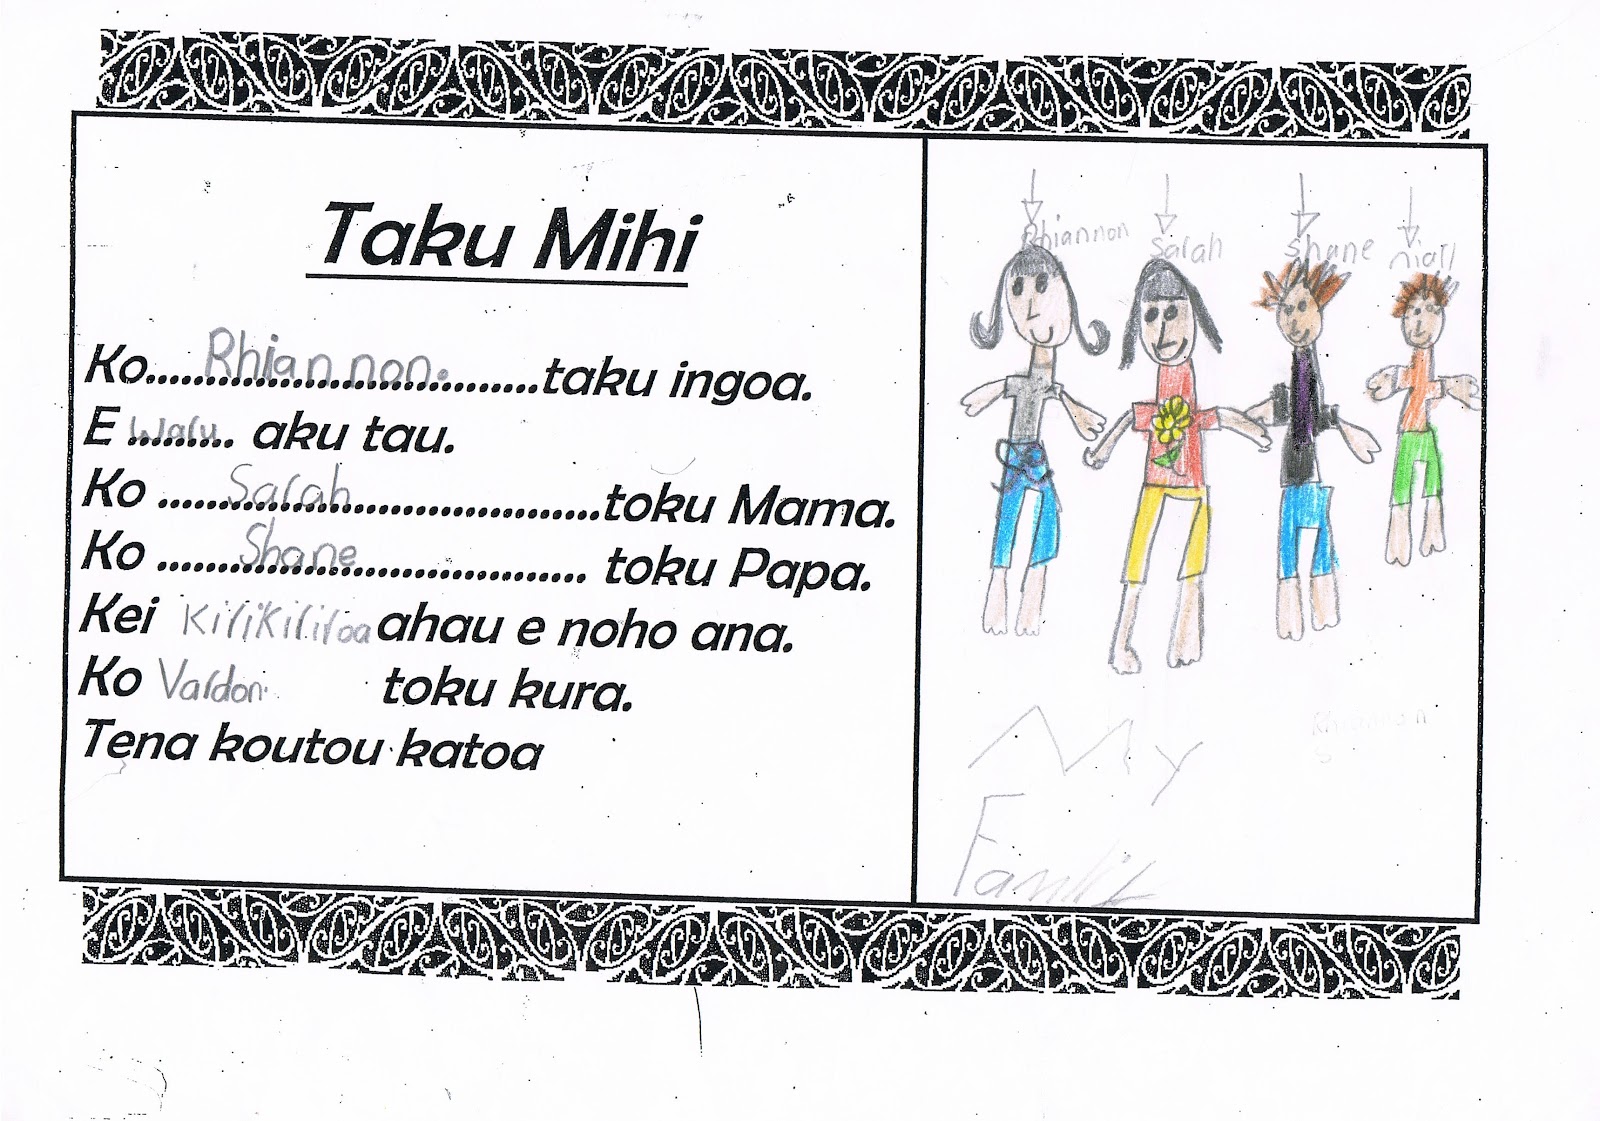 Taku Mihi
Ko......Rhiannon..........taku ingoa.
E ..Waru.. aku tau.
Ko ......Sarah......................toku Mama.
Ko .......Shane................... toku Papa.
Kei Kirikiriroa ahau e noho ana.
Ko Vardon. toku kura.
Tena koutou katoa
Rhiannon Sarah Shane niall
My
Family
Rhiannon